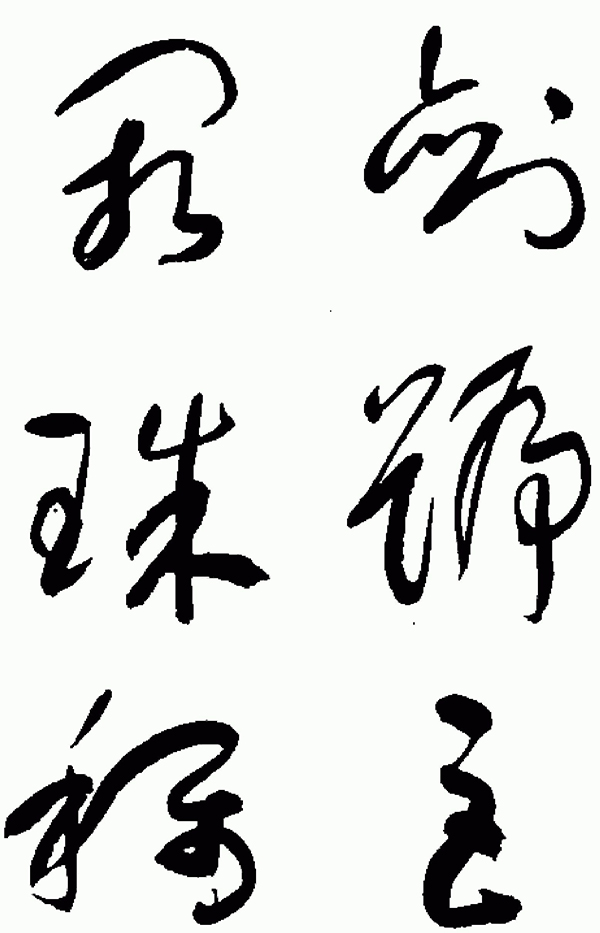 劍號巨
闕珠稱